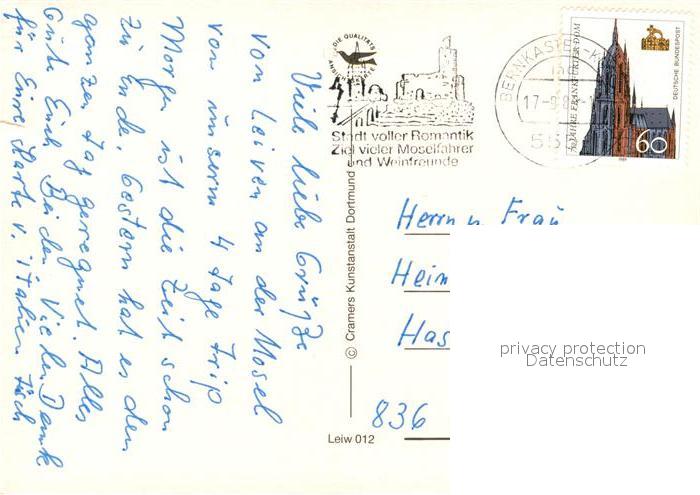 Viele liebe Grüße
von Leiven an der Mosel
von unserm 4 Tage Trip
Morgen ist die Zeit schon
zu Ende. Gestern hat es den
ganzen Tag geregnet. Alles
Gute Euch Beiden Vielen Dank
für Eure Karte v. Italien
DIE QUALITÄTS
ANSICHTSKARTE
Stadt voller Romantik
Ziel vieler Moselfahrer
und Weinfreunde
BERNKASTEL-K
17-9
55
750 JAHRE FRANKFURTER DOM
DEUTSCHE BUNDESPOST
60
1989
© Cramers Kunstanstalt Dortmund
Leiw 012
Herrn u. Frau
Hein
Has
836
privacy protection
Datenschutz